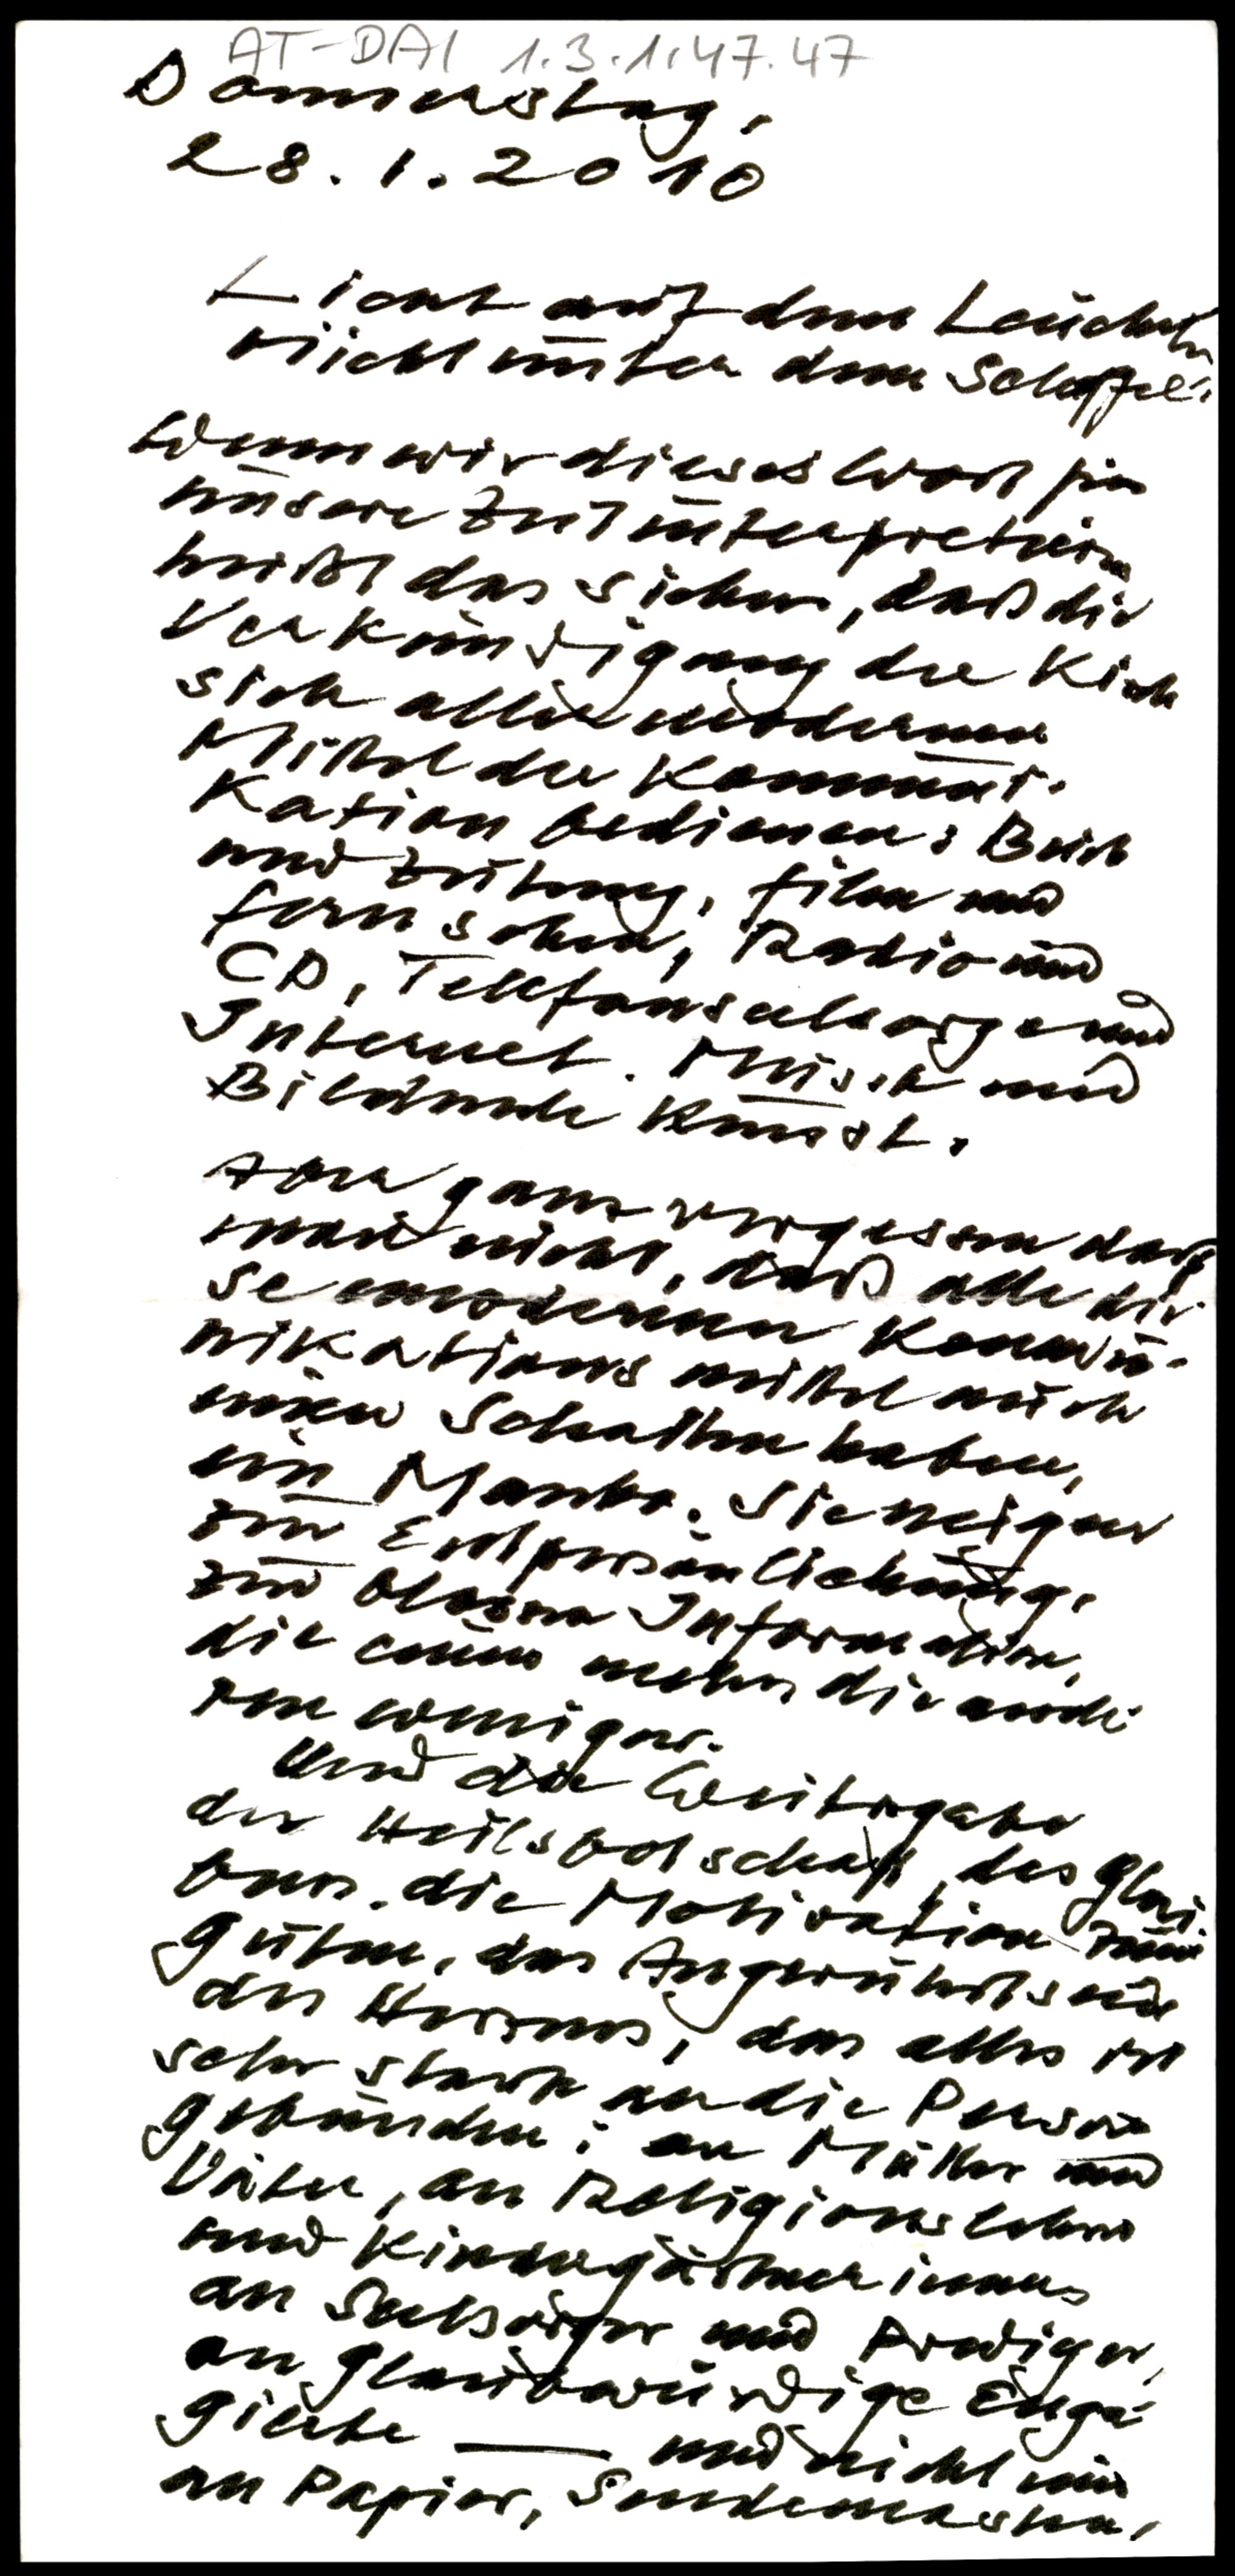 AT-DAI 1.3.1.47.47
Donnerstag,
28.1.2010
Licht auf dem Leuchter
nicht unter dem Scheffel.
Wenn wir dieses Wort für
unsere Zeit interpretieren
heißt das sicher, daß die
Verkündigung der Kirche
sich aller modernen
Mittel der Kommuni-
kation bedienen: Buch
und Zeitung, Film und
Fernsehen, Radio und
CD, Telefonseelsorge und
Internet. Musik und
Bildende Kunst.
Aber ganz vergessen darf
man nicht, daß alle die-
se modernen Kommu-
nikationsmittel auch
einen Schatten haben,
ein Manko. Sie neigen
zur Entpersönlichung,
zur bloßen Information,
die einen mehr, die ande-
ren weniger.
Und die Weitergabe
der Heilsbotschaft, des Glau-
bens, die Motivation zum
Guten, das Angerührtsein
des Herzens, das alles ist
sehr stark an die Person
gebunden: an Mütter und
Väter, an Religionslehrer
und Kindergärtnerinnen
an Seelsorger und Prediger,
an glaubwürdige Enga-
gierte — und nicht nur
an Papier, Sendemasten,